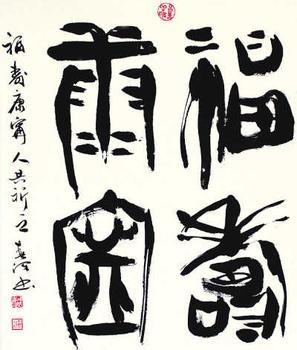 福壽
康寧
福壽康寧人共祈之